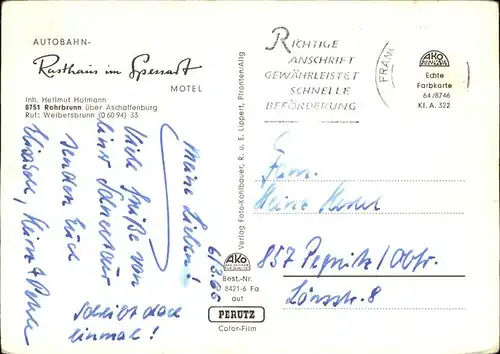 AUTOBAHN-
Rasthaus im Spessart
MOTEL
Inh. Hellmut Hofmann
8751 Rohrbrunn über Aschaffenburg
Ruf: Weibersbrunn (0 60 94) 33
6/3.66
Meine Lieben!
Viele Grüße von
einer Schneetour
senden Euch
Schreibt doch
einmal!
Verlag Foto-Kohlbauer, R. u. E. Lippert, Pfronten/Allg
AKO
Best.-Nr.
D 8421-6 Fa
auf
PERUTZ
Color-Film
RICHTIGE
ANSCHRIFT
GEWÄHRLEISTET
SCHNELLE
BEFÖRDERUNG
FRANK
AKO
Echte
Farbkarte
64/8746
Kl. A. 322
Fam.
Heinz
857 Pegnitz/Obfr.
Lönsstr. 8